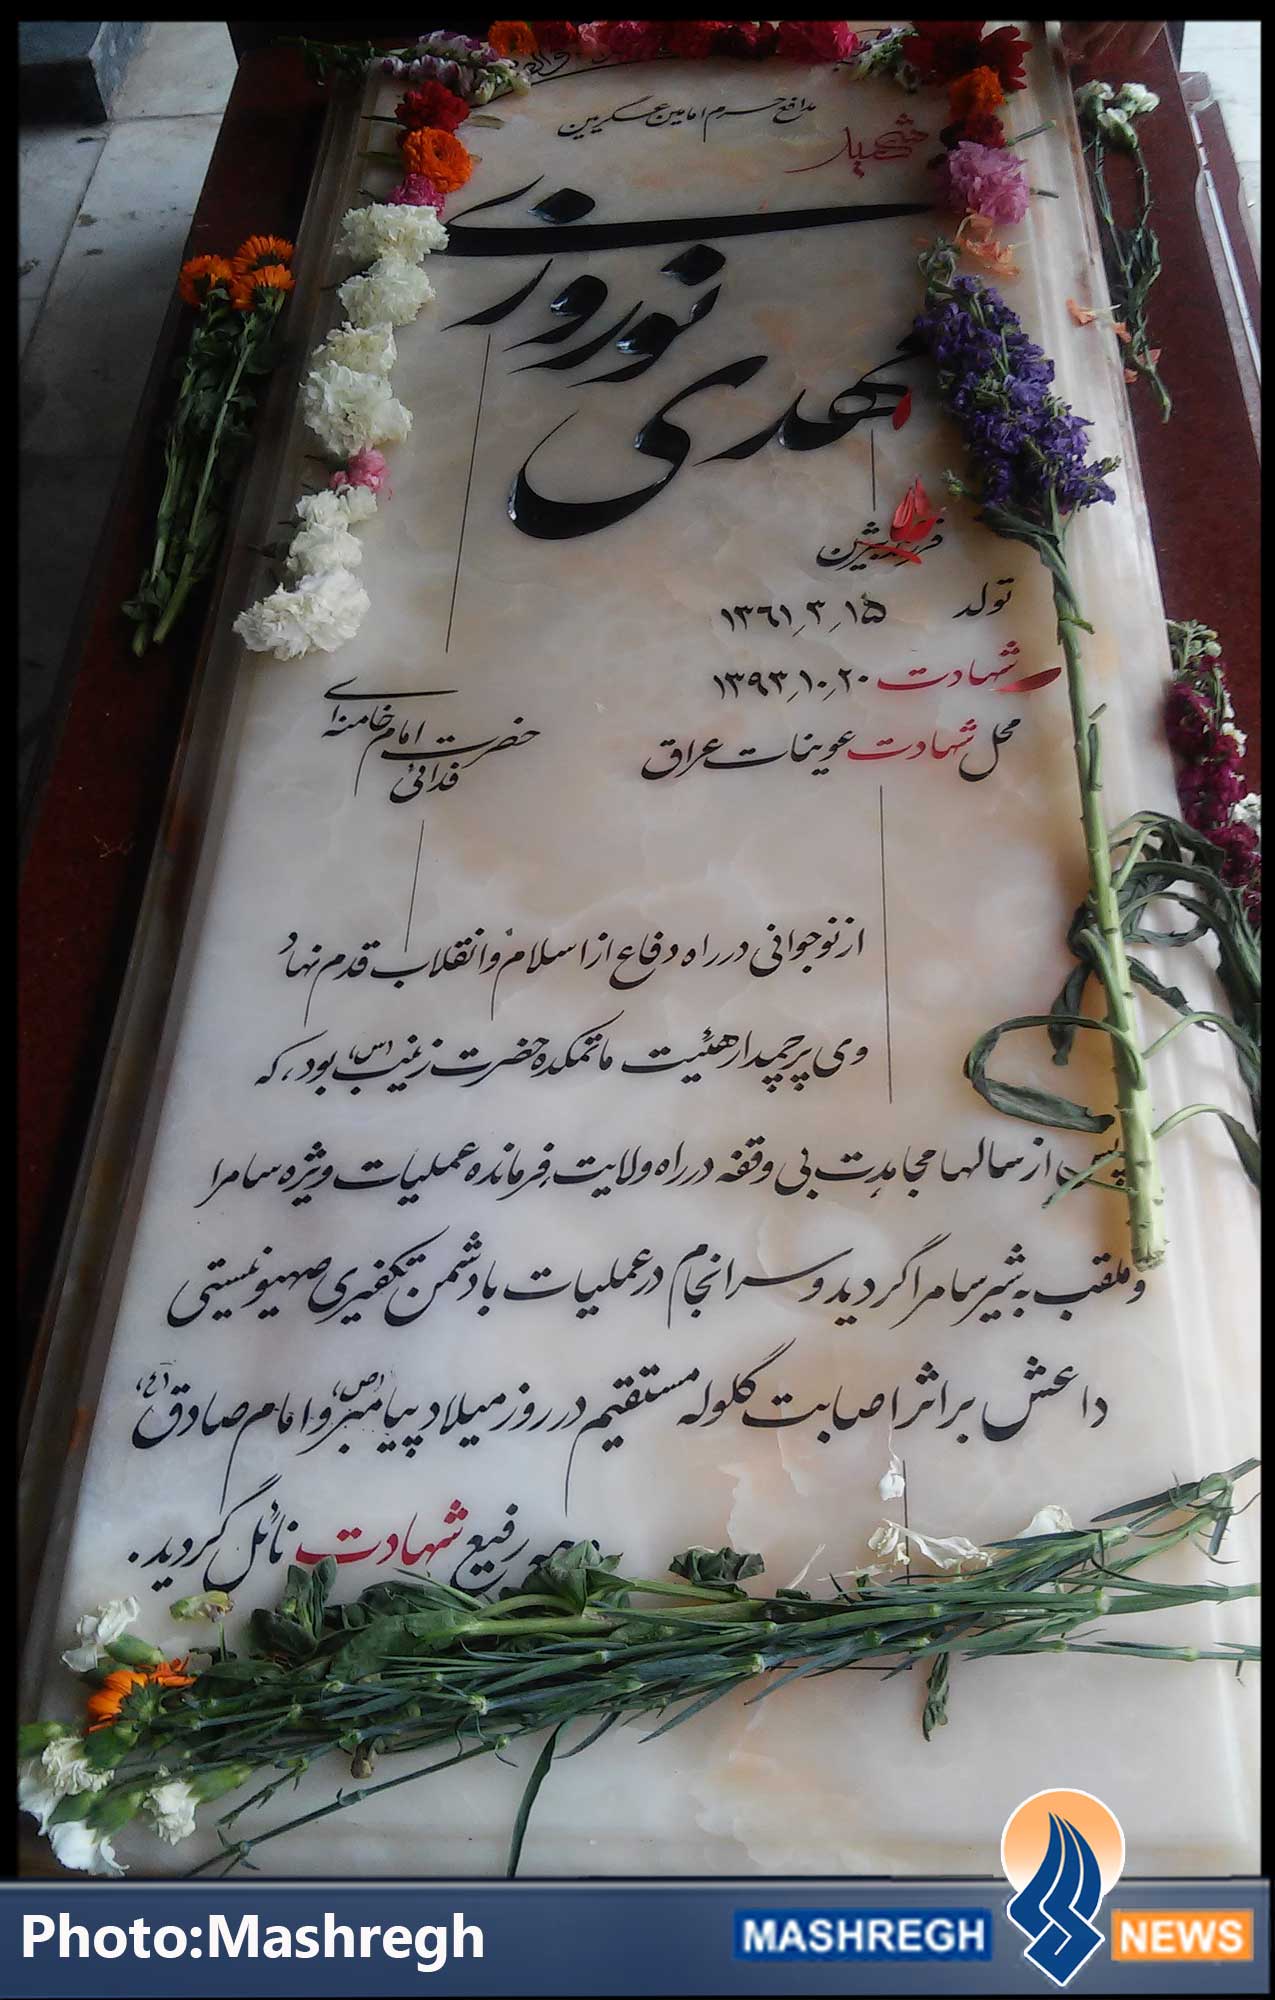 مدافع حرم امامین عسگریین
شهید
مهدی نوروزی
فرزند بیژن
تولد ۱۳۶۱٫۳٫۱۵
شهادت ۱۳۹۳٫۱۰٫۲۰
محل شهادت عوینات عراق
فدائی حضرت امام خامنه ای
از نوجوانی در راه دفاع از اسلام و انقلاب قدم نهاد
وی پرچمدار هیئت ماتمکده حضرت زینب (س) بود، که
پس از سالها مجاهدت بی وقفه در راه ولایت، فرمانده عملیات ویژه سامرا
و ملقب به شیر سامرا گردید و سرانجام در عملیات با دشمن تکفیری صهیونیستی
داعش بر اثر اصابت گلوله مستقیم در روز میلاد پیامبر (ص) و امام صادق (ع)
رفیع شهادت نائل گردید.
Photo:Mashregh
MASHREGH NEWS